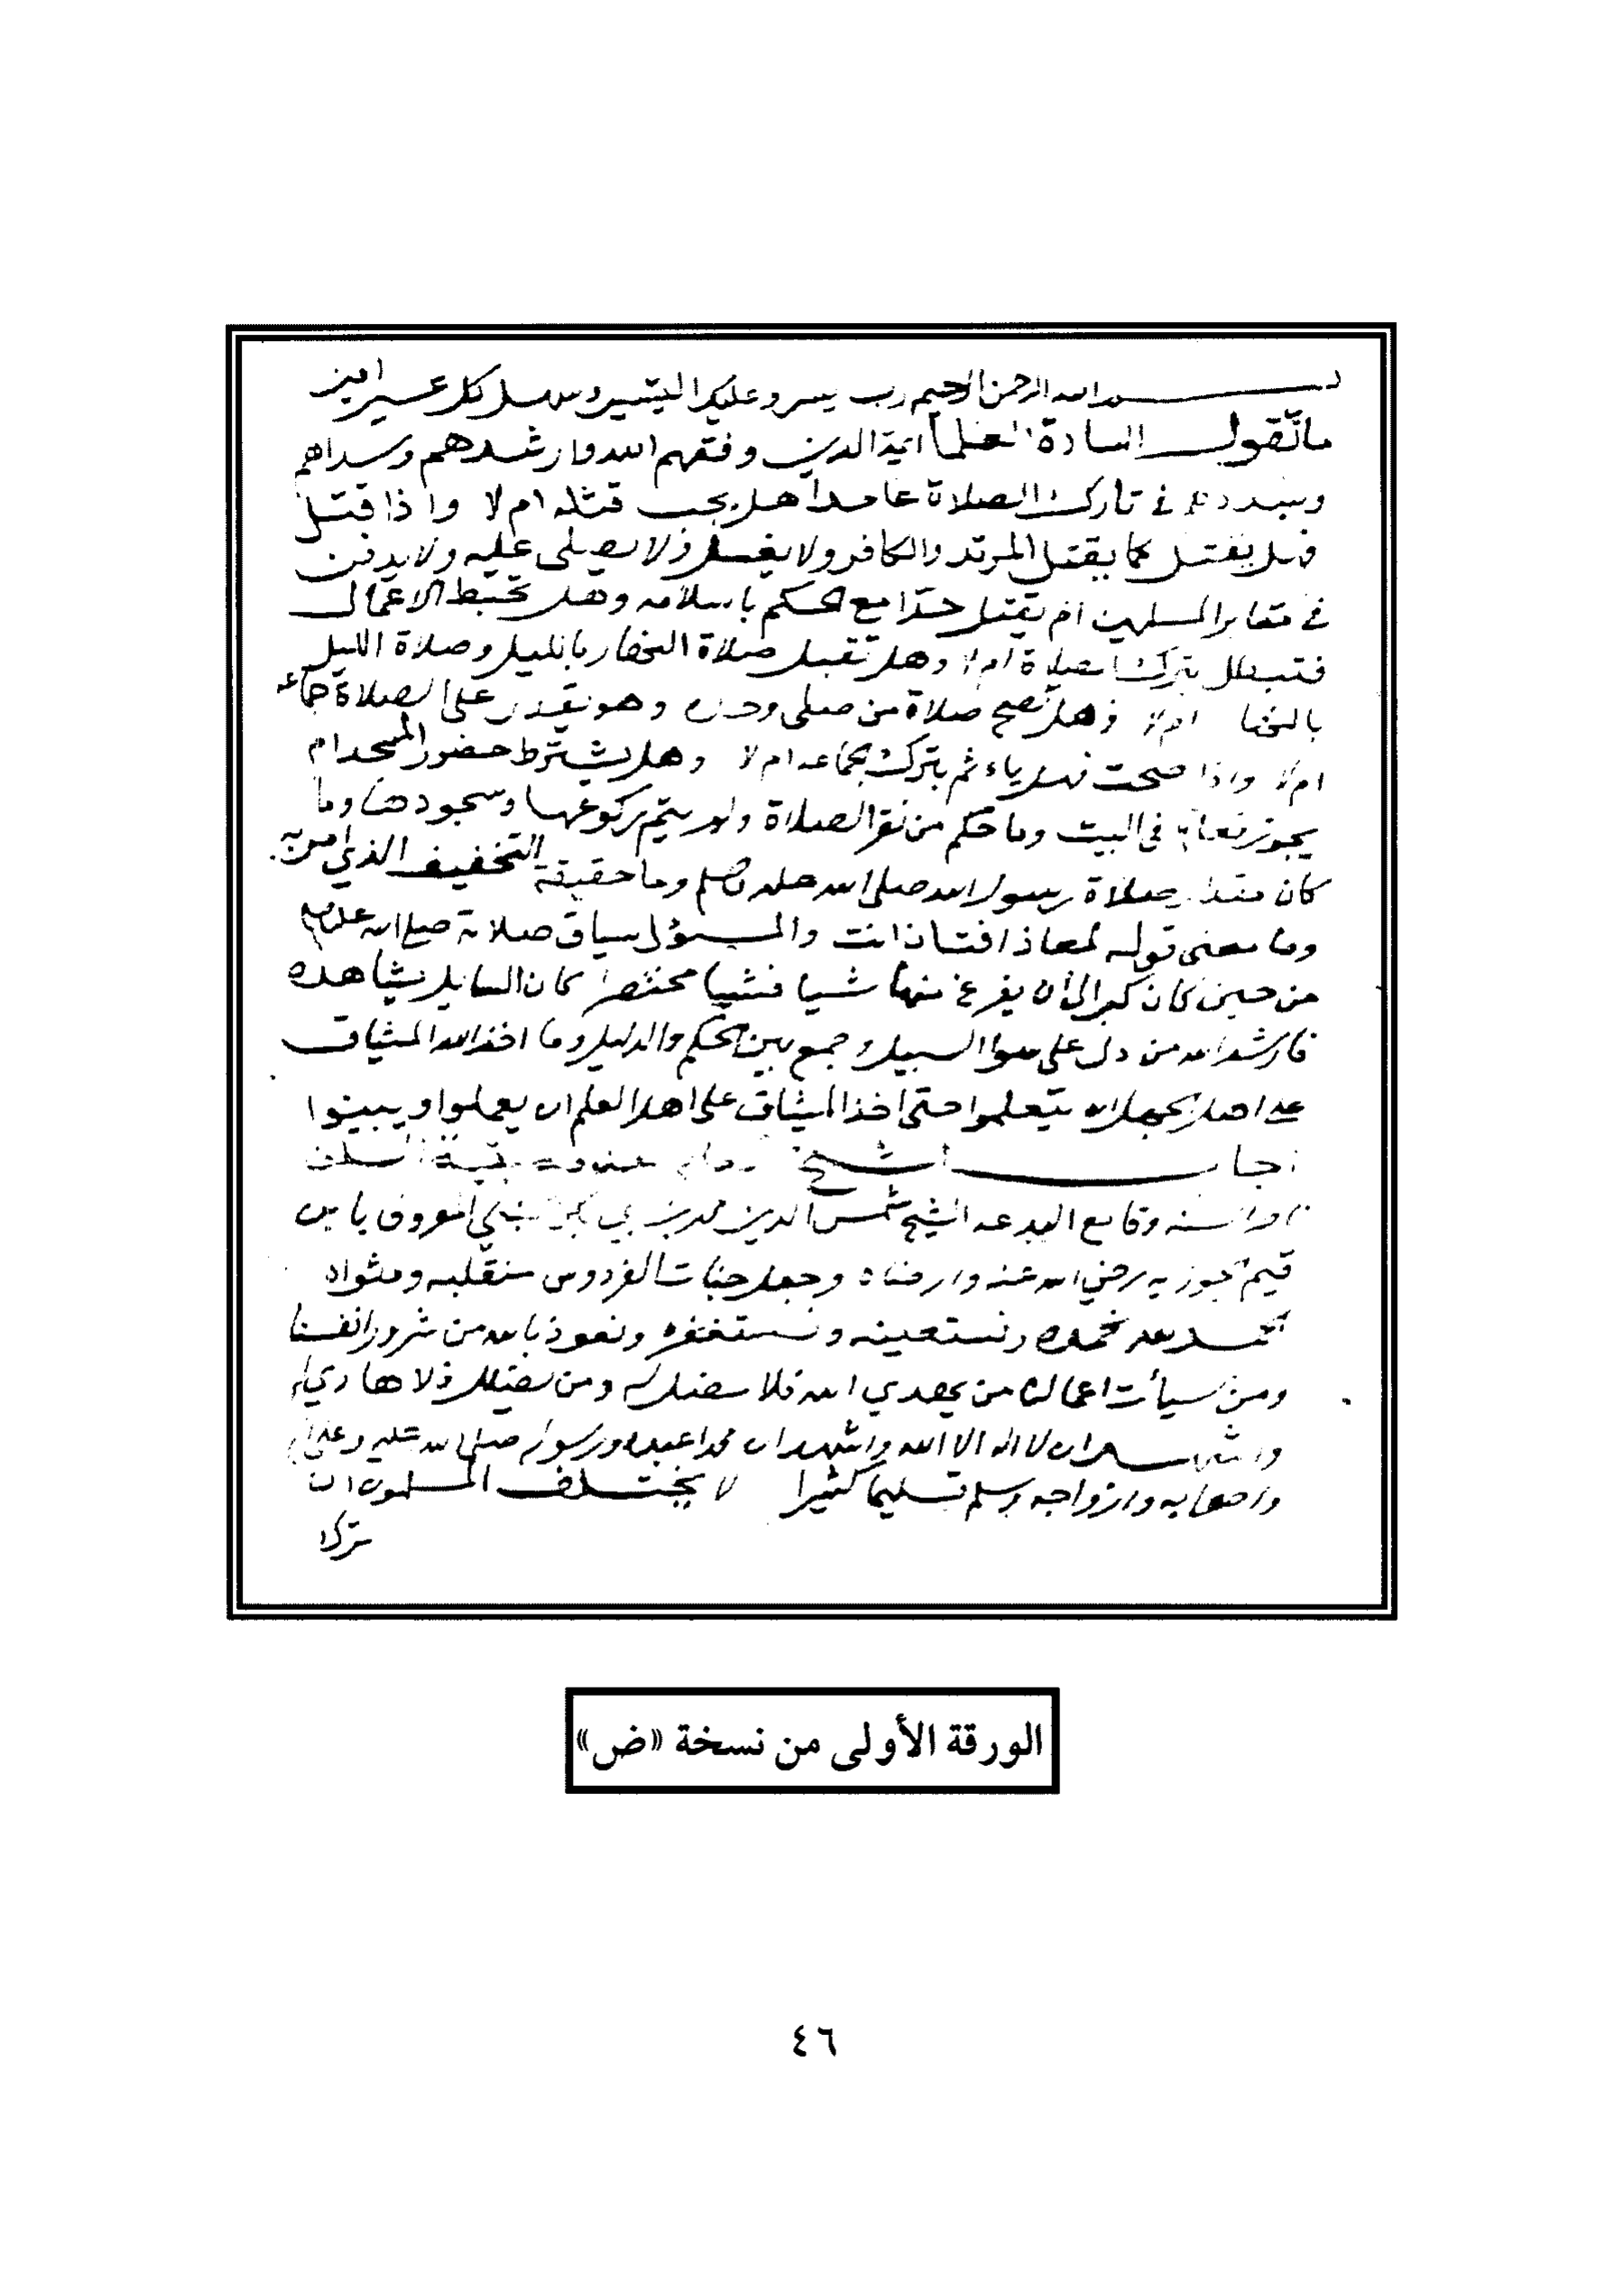 بسم الله الرحمن الرحيم رب يسر وعليك التيسير وسهل كل عسير امين
ما تقول السادة العلما ايمة الدين وفقهم الله وارشدهم وسداهم
في تارك الصلاة عامدا هل يجب قتله ام لا واذا قتل
فهل يقتل كما يقتل المرتد والكافر ولا يغسل ولا يصلى عليه ولا يدفن
في مقابر المسلمين ام يقتل حدا مع الحكم باسلامه وهل تحبط الاعمال
فتبطل بترك الصلاة ام لا وهل تقبل صلاة النهار بالليل وصلاة الليل
بالنهار ام لا وهل تصح صلاة من صلى وحده وهو يقدر على الصلاة جماعه
ام لا واذا صحت فهل ياثم بترك الجماعه ام لا وهل يشترط حضور المسجد ام
يجوز فعلها في البيت وما حكم من نقر الصلاة ولم يتم ركوعها وسجودها وما
كان مقدار صلاة رسول الله صلى الله عليه وسلم وما حقيقة التخفيف الذي امر به
وما معنى قوله لمعاذ افتان انت والمسؤل سياق صلاته صلى الله عليه وسلم
من حين كان كبر الى ان يفرغ منها شيا فشيا مختصرا كان السايل يشاهده
فارشد الله من دل على سوا السبيل وجمع بين الحكم والدليل وما اخذ الله الميثاق
على اهل الجهل ان يتعلموا حتى اخذ الميثاق على اهل العلم ان يعملوا ويبينوا
اجاب الشيخ بقية السلف
السنه وقامع البدعه الشيخ شمس الدين محمد بن ابي بكر الحنبلي المعروف بابن
قيم الجوزيه رضي الله عنه وارضاه وجعل جنات الفردوس منقلبه ومثواه
الحمد لله نحمده ونستعينه ونستغفره ونعوذ بالله من شرور انفسنا
ومن سيأت اعمالنا من يهدي الله فلا مضل له ومن يضلل فلا هادي له
واشهد ان لا اله الا الله واشهد ان محمدا عبده ورسوله صلى الله عليه وعلى اله
واصحابه وازواجه وسلم تسليما كثيرا لا يختلف المسلمون ان
ترك
الورقة الأولى من نسخة «ض»
٤٦